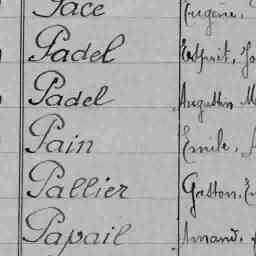 Pace Eugène,
Padel Esprit, Jo
Padel Augustin M
Pain Emile, A
Pallier Gaston, En
Papail Amand,